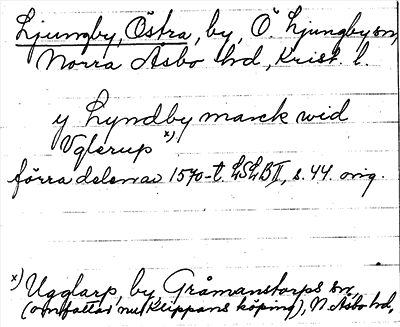 Ljungby, Östra, by, Ö. Ljungby sn,
Norra Åsbo hd, Krist. l.
y Lyndby marck wid
Uglerup x)
förra delen av 1570-t. LSLB II, s. 44. orig.
x) Ugglarp, by, Gråmanstorps sn,
(omfattar nu Klippans köping), N. Åsbo hd,